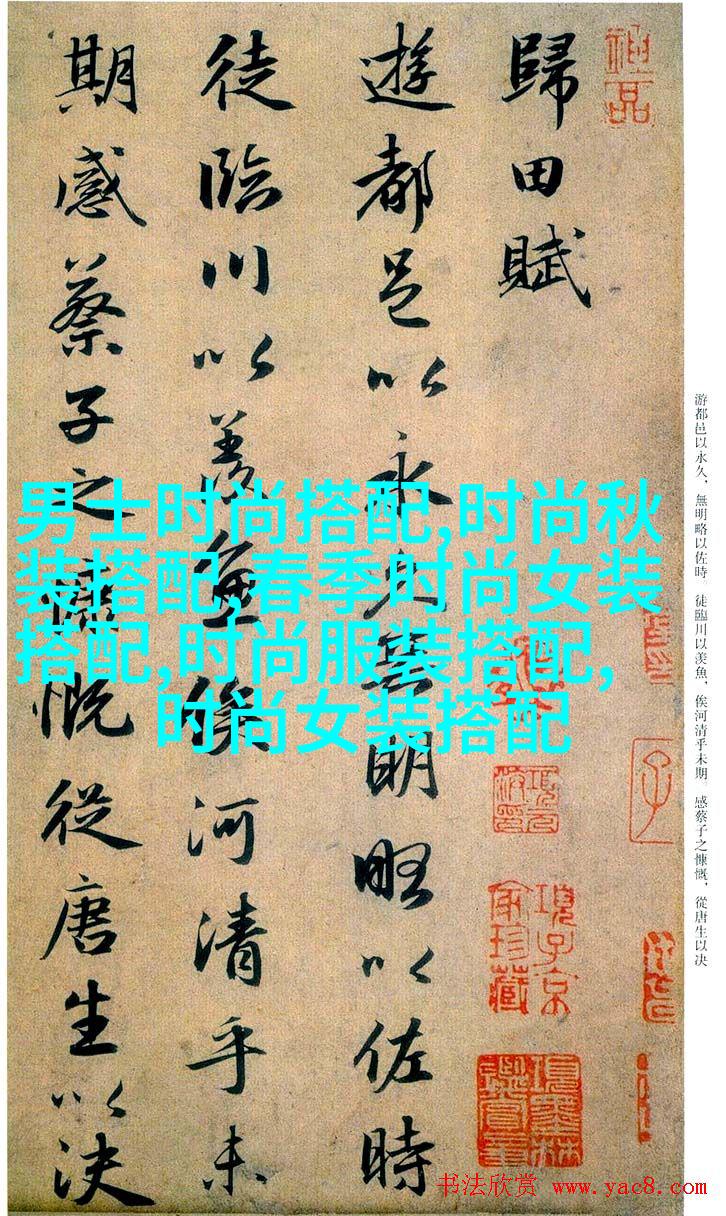 歸田賦
遊都邑以永久無明略以佐時
徒臨川以羨魚俟河清乎未
期感蔡子之慷慨從唐生以決
男士时尚搭配,时尚秋
装搭配,春季时尚女装
搭配,时尚服装搭配,
时尚女装搭配
游都邑以永久，無明略以佐時。徒臨川以羨魚，俟河清乎未期。感蔡子之慷慨，從唐生以決
項子京
家珍藏
书法欣赏 www.yac8.com